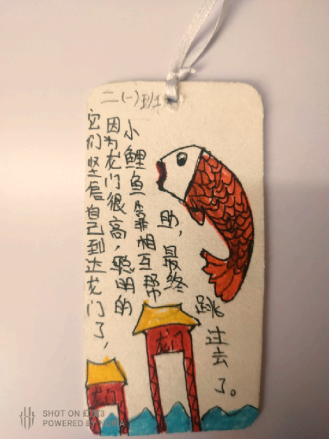 二(一)班
它们坚信自己到达龙门了,
因为龙门很高,聪明的
小鲤鱼靠相互帮
助,最终
跳
过去了。
龙门
SHOT ON
POWERED BY